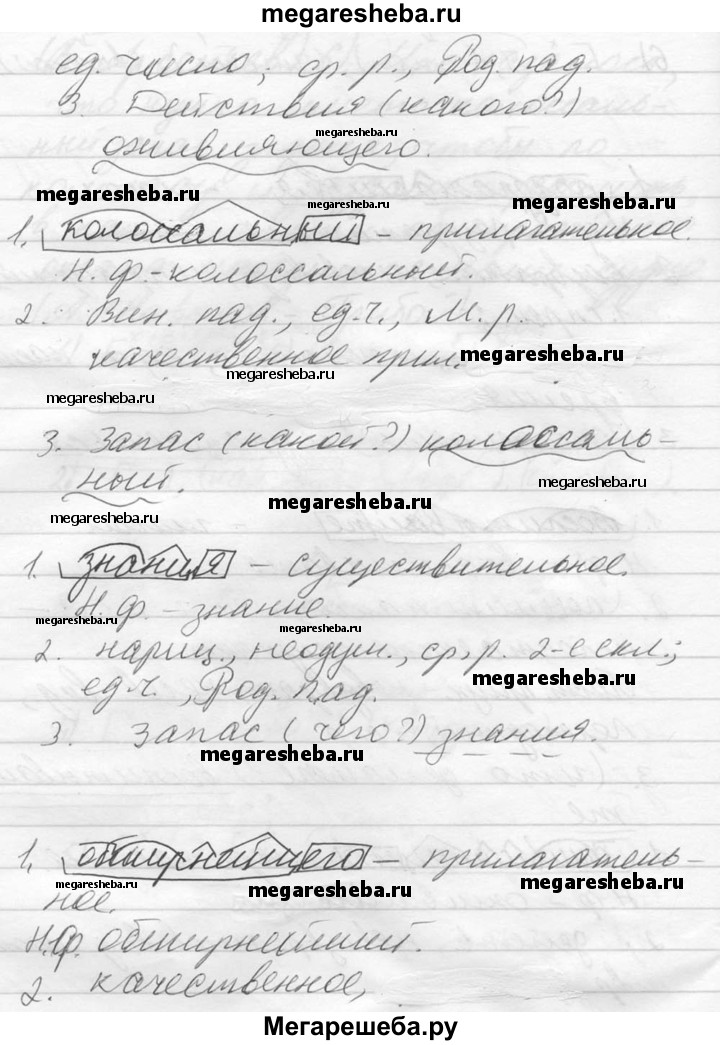 megaresheba.ru
ед. число; ср. р., Род. пад.
3. Действия (какого?)
megaresheba.ru
оживляющего.
megaresheba.ru megaresheba.ru megaresheba.ru
1. колоссальный – прилагательное.
Н.ф.-колоссальный.
2. Вин. пад., ед.ч., М.р.
качественное прил. megaresheba.ru
megaresheba.ru
megaresheba.ru
3. Запас (какой?) колоссаль-
megaresheba.ru
ный. megaresheba.ru
megaresheba.ru
1. знания – существительное.
Н.ф – знание.
megaresheba.ru megaresheba.ru
2. нариц., неодуш., ср.р. 2-е скл.;
megaresheba.ru
ед.ч., Род. пад.
3. Запас (чего?) знания.
megaresheba.ru
1. обширнейшего – прилагатель-
megaresheba.ru megaresheba.ru megaresheba.ru
ное.
Н.ф. обширнейший.
2. качественное,
Мегарешеба.ру